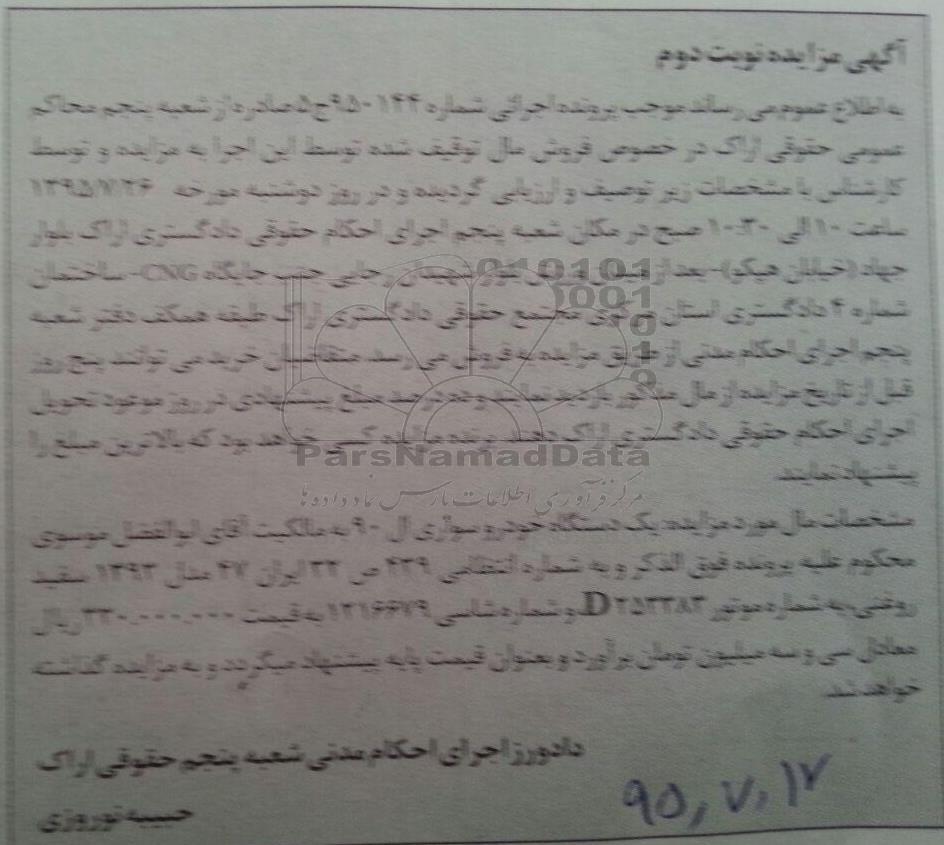 آگهی مزایده نوبت دوم
به اطلاع عموم می رساند موجب پرونده اجرائی شماره ۹۵۰۱۴۴ج۵ صادره از شعبه پنجم محاکم
عمومی حقوقی اراک در خصوص فروش مال توقیف شده توسط این اجرا به مزایده و توسط
کارشناس با مشخصات زیر توصیف و ارزیابی گردیده و در روز دوشنبه مورخه ۱۳۹۵/۷/۲۶
ساعت ۱۰ الی ۱۰:۳۰ صبح در مکان شعبه پنجم اجرای احکام حقوقی دادگستری اراک بلوار
جهاد (خیابان هپکو)- بعد از میدان شهیدان رجایی جنب جایگاه CNG- ساختمان
شماره ۴ دادگستری استان مرکزی مجتمع حقوقی دادگستری اراک طبقه همکف دفتر شعبه
پنجم اجرای احکام مدنی از طریق مزایده به فروش می رسد. متقاضیان خرید می توانند پنج روز
قبل از تاریخ مزایده از مال مذکور بازدید نمایند و ده درصد مبلغ پیشنهادی در روز موعود تحویل
اجرای احکام حقوقی دادگستری اراک دهند. برنده مزایده کسی خواهد بود که بالاترین مبلغ را
پیشنهاد نمایند.
ParsNamadData
مرکز فرآوری اطلاعات پارس نماد داده ها
مشخصات مال مورد مزایده: یک دستگاه خودرو سواری ال ۹۰ به مالکیت آقای ابوالفضل موسوی
محکوم علیه پرونده فوق الذکر و به شماره انتظامی ۴۳۹ ص ۳۲ ایران ۴۷ مدل ۱۳۹۳ سفید
روغنی، به شماره موتور D۲۵۲۳۸۳ و شماره شاسی ۱۳۱۶۶۷۹ به قیمت ۳۳۰.۰۰۰.۰۰۰ ریال
معادل سی و سه میلیون تومان برآورد و بعنوان قیمت پایه پیشنهاد میگردد و به مزایده گذاشته
خواهد شد.
دادورز اجرای احکام مدنی شعبه پنجم حقوقی اراک
حبیبه نوروزی
۹۵,۷,۱۷